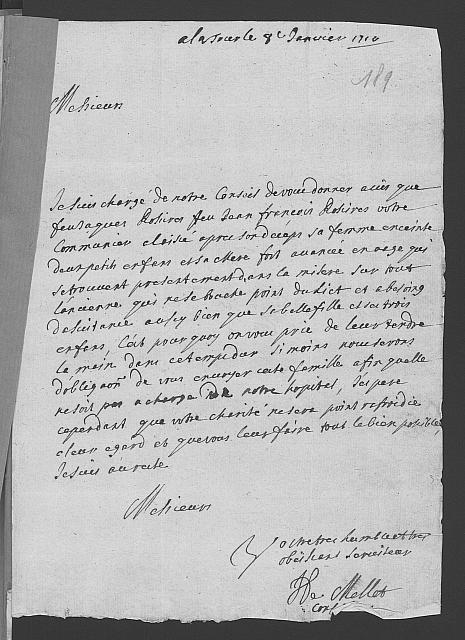 a la Tour le 8e Janvier 1710
189
Messieurs
Je suis chargé de notre Conseil de vous donner avis que
feu Jaques Rosires feu Jean françois Rosires votre
Communier a laissé apres son decéps sa femme enceinte
deux petits enfans et sa chere fort avancée en aage qui
se trouvent presentement dans la misere sur tout
l'ancienne qui ne se bouche point du lict et a besoing
d'assistance aussy bien que sa belle fille et ses trois
enfans, C'est pourquoy on vous prie de leur tendre
la main dans ce temps dur si moins nous serons
d'obligeon de vous envoyer cete famille afin quelle
ne soit pas a charge de notre hopital, J'espere
cependant que votre charité ne sera point refroidie
a leur egard et que vous leur faire tout le bien possible,
Je suis au reste
Messieurs
Votre tres humble et tres
obeissant serviteur
De Mellet